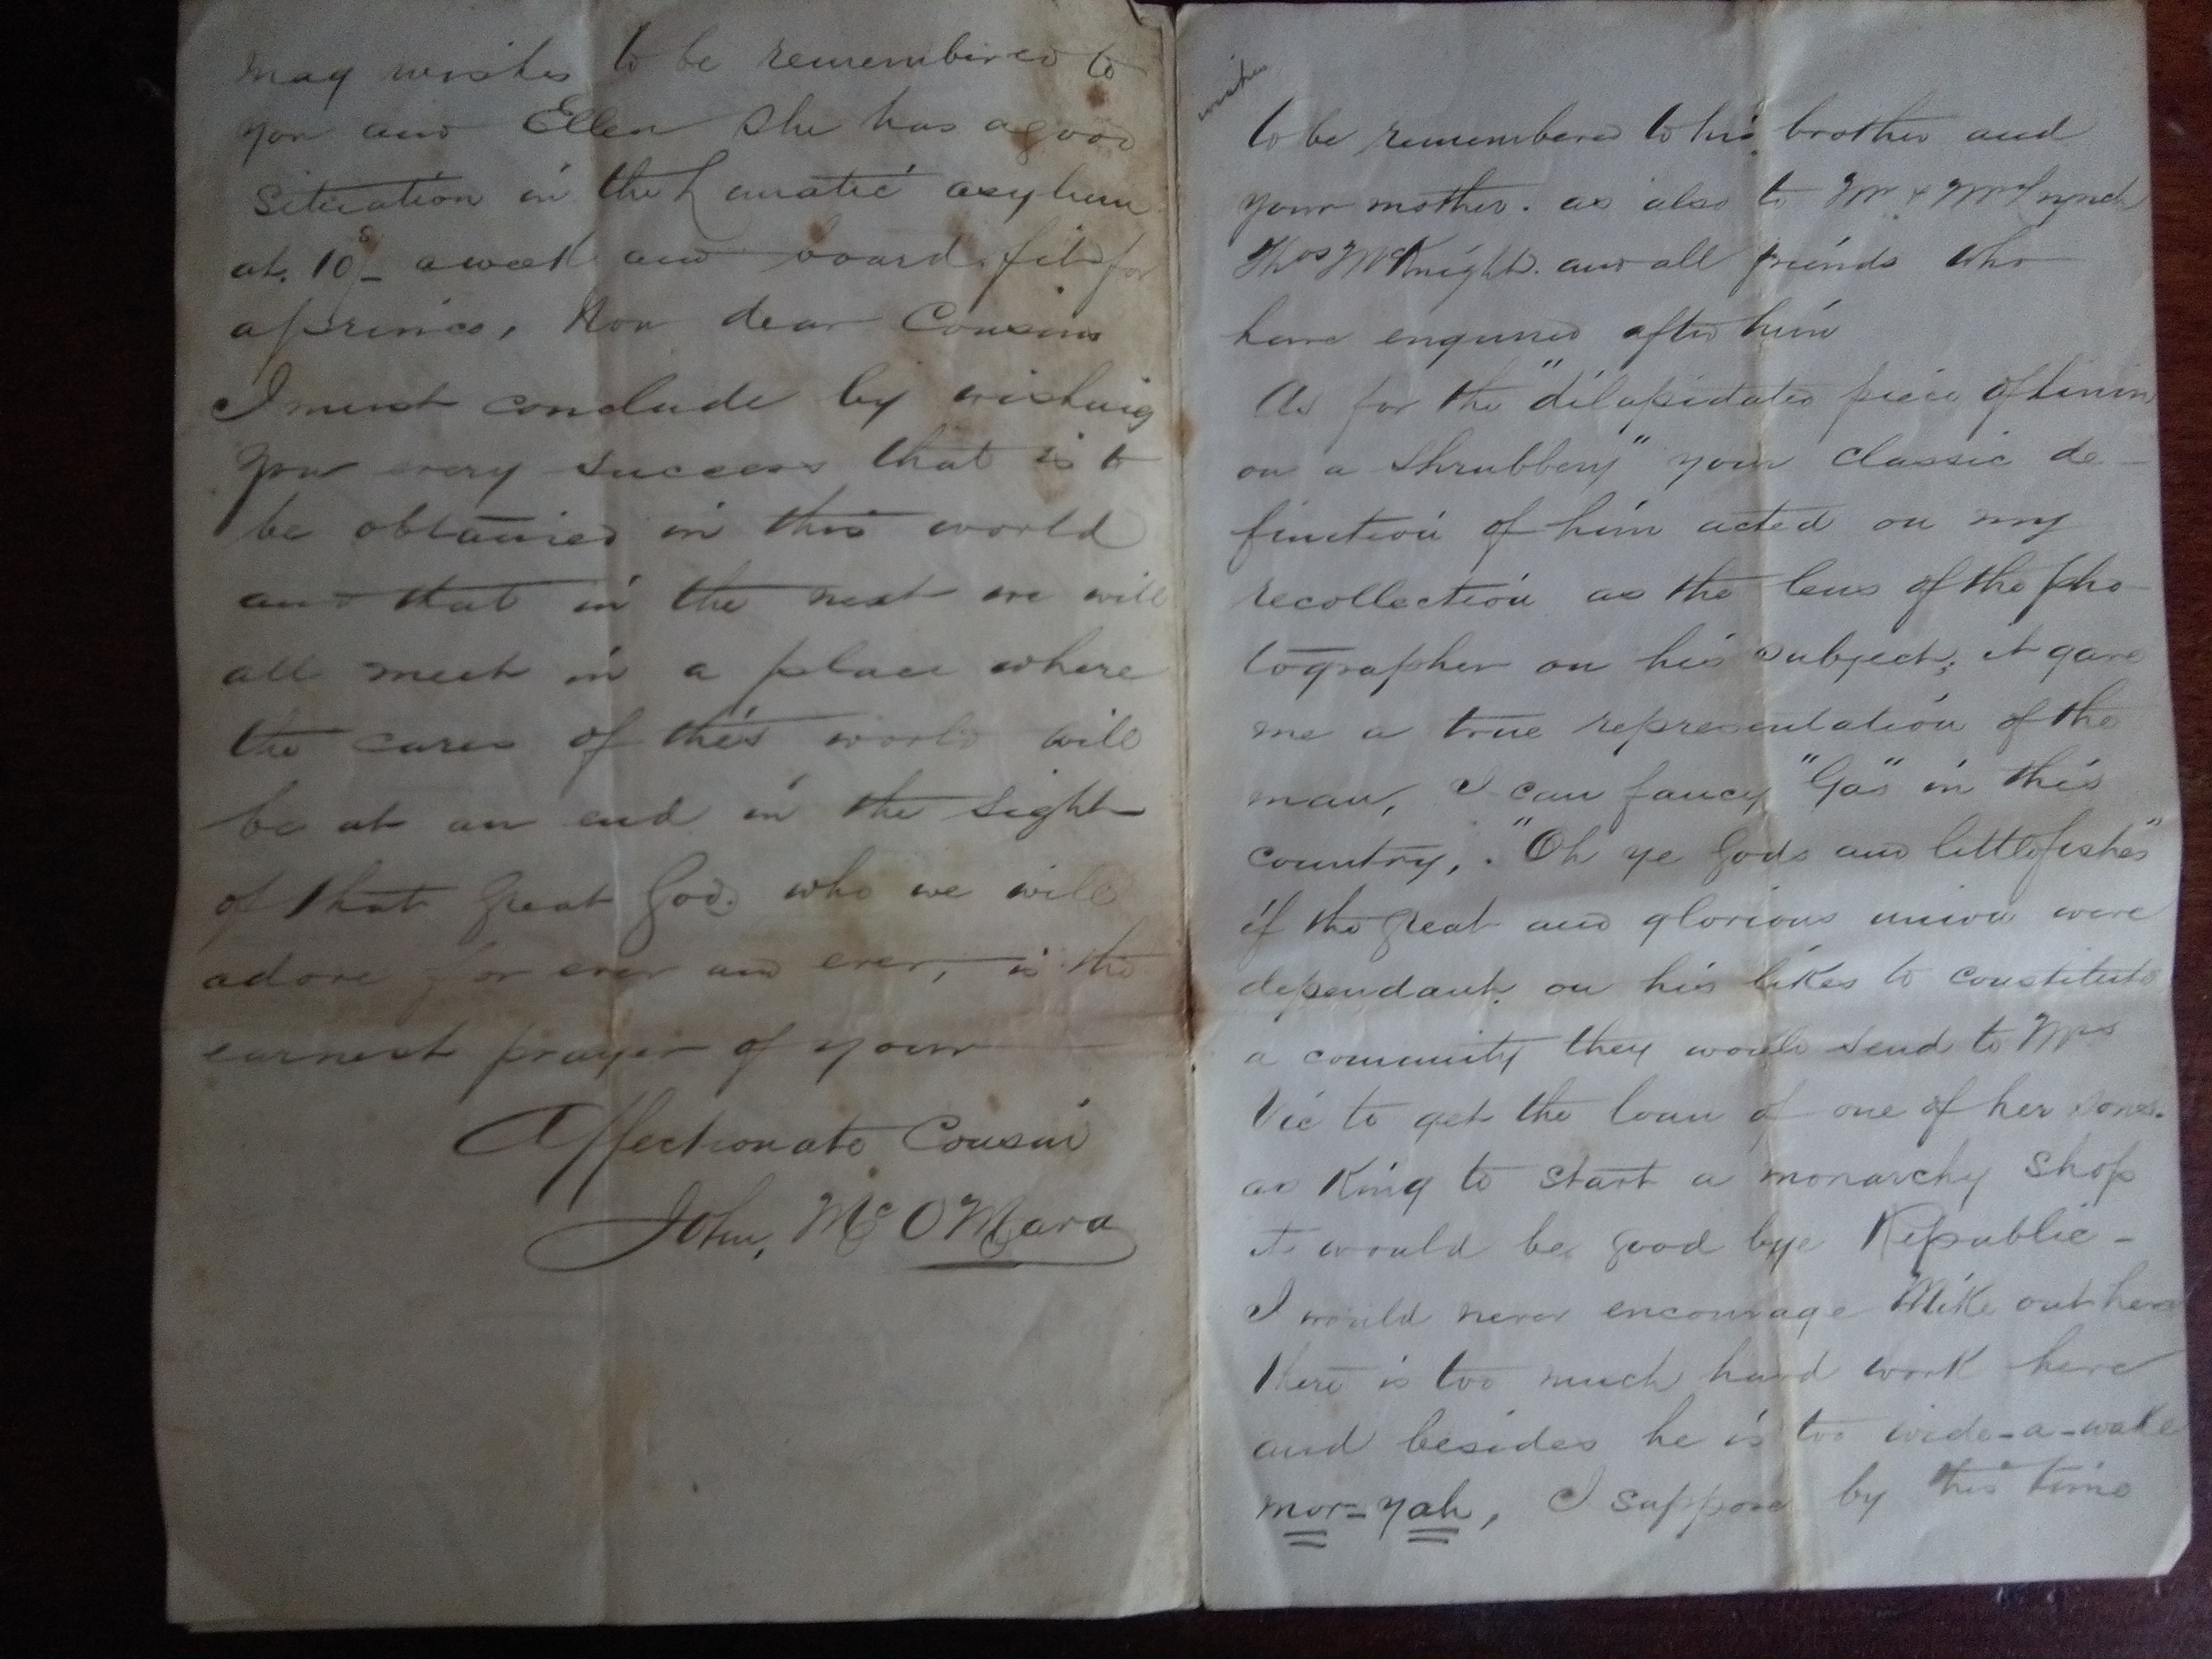 may wishes to be remembered to
you and Ellen She has a good
Situation in the Lunatic asylum
at 10s- a week and board fit for
a prince, Now dear Cousins
I must conclude by wishing
you every success that is to
be obtained in this world
and that in the next we will
all meet in a place where
the cares of this world will
be at an end in the sight
of that great God. who we will
adore for ever and ever, is the
earnest prayer of your
Affectionate Cousin
John, Mc OMara
wishes
to be remembered to his brother and
your mother. as also to Mr & Mrs Lynch
Thos McKnight. and all friends who
have enquired after him
As for the "dilapidated piece of
on a shrubbery" your classic de-
finition of him acted on my
recollection as the lens of the pho-
tographer on his subject; it gave
me a true representation of the
man, I can fancy "Gas" in this
country, . "Oh ye Gods and little fishes"
if the great and glorious union were
dependant on his likes to constitute
a community they would send to Mrs
Vic to get the loan of one of her sons.
as King to start a monarchy shop
it would be good bye Republic -
I would never encourage Mike out here
there is too much hard work here
and besides he is too wide-a-wake
mor-yah, I suppose by this time